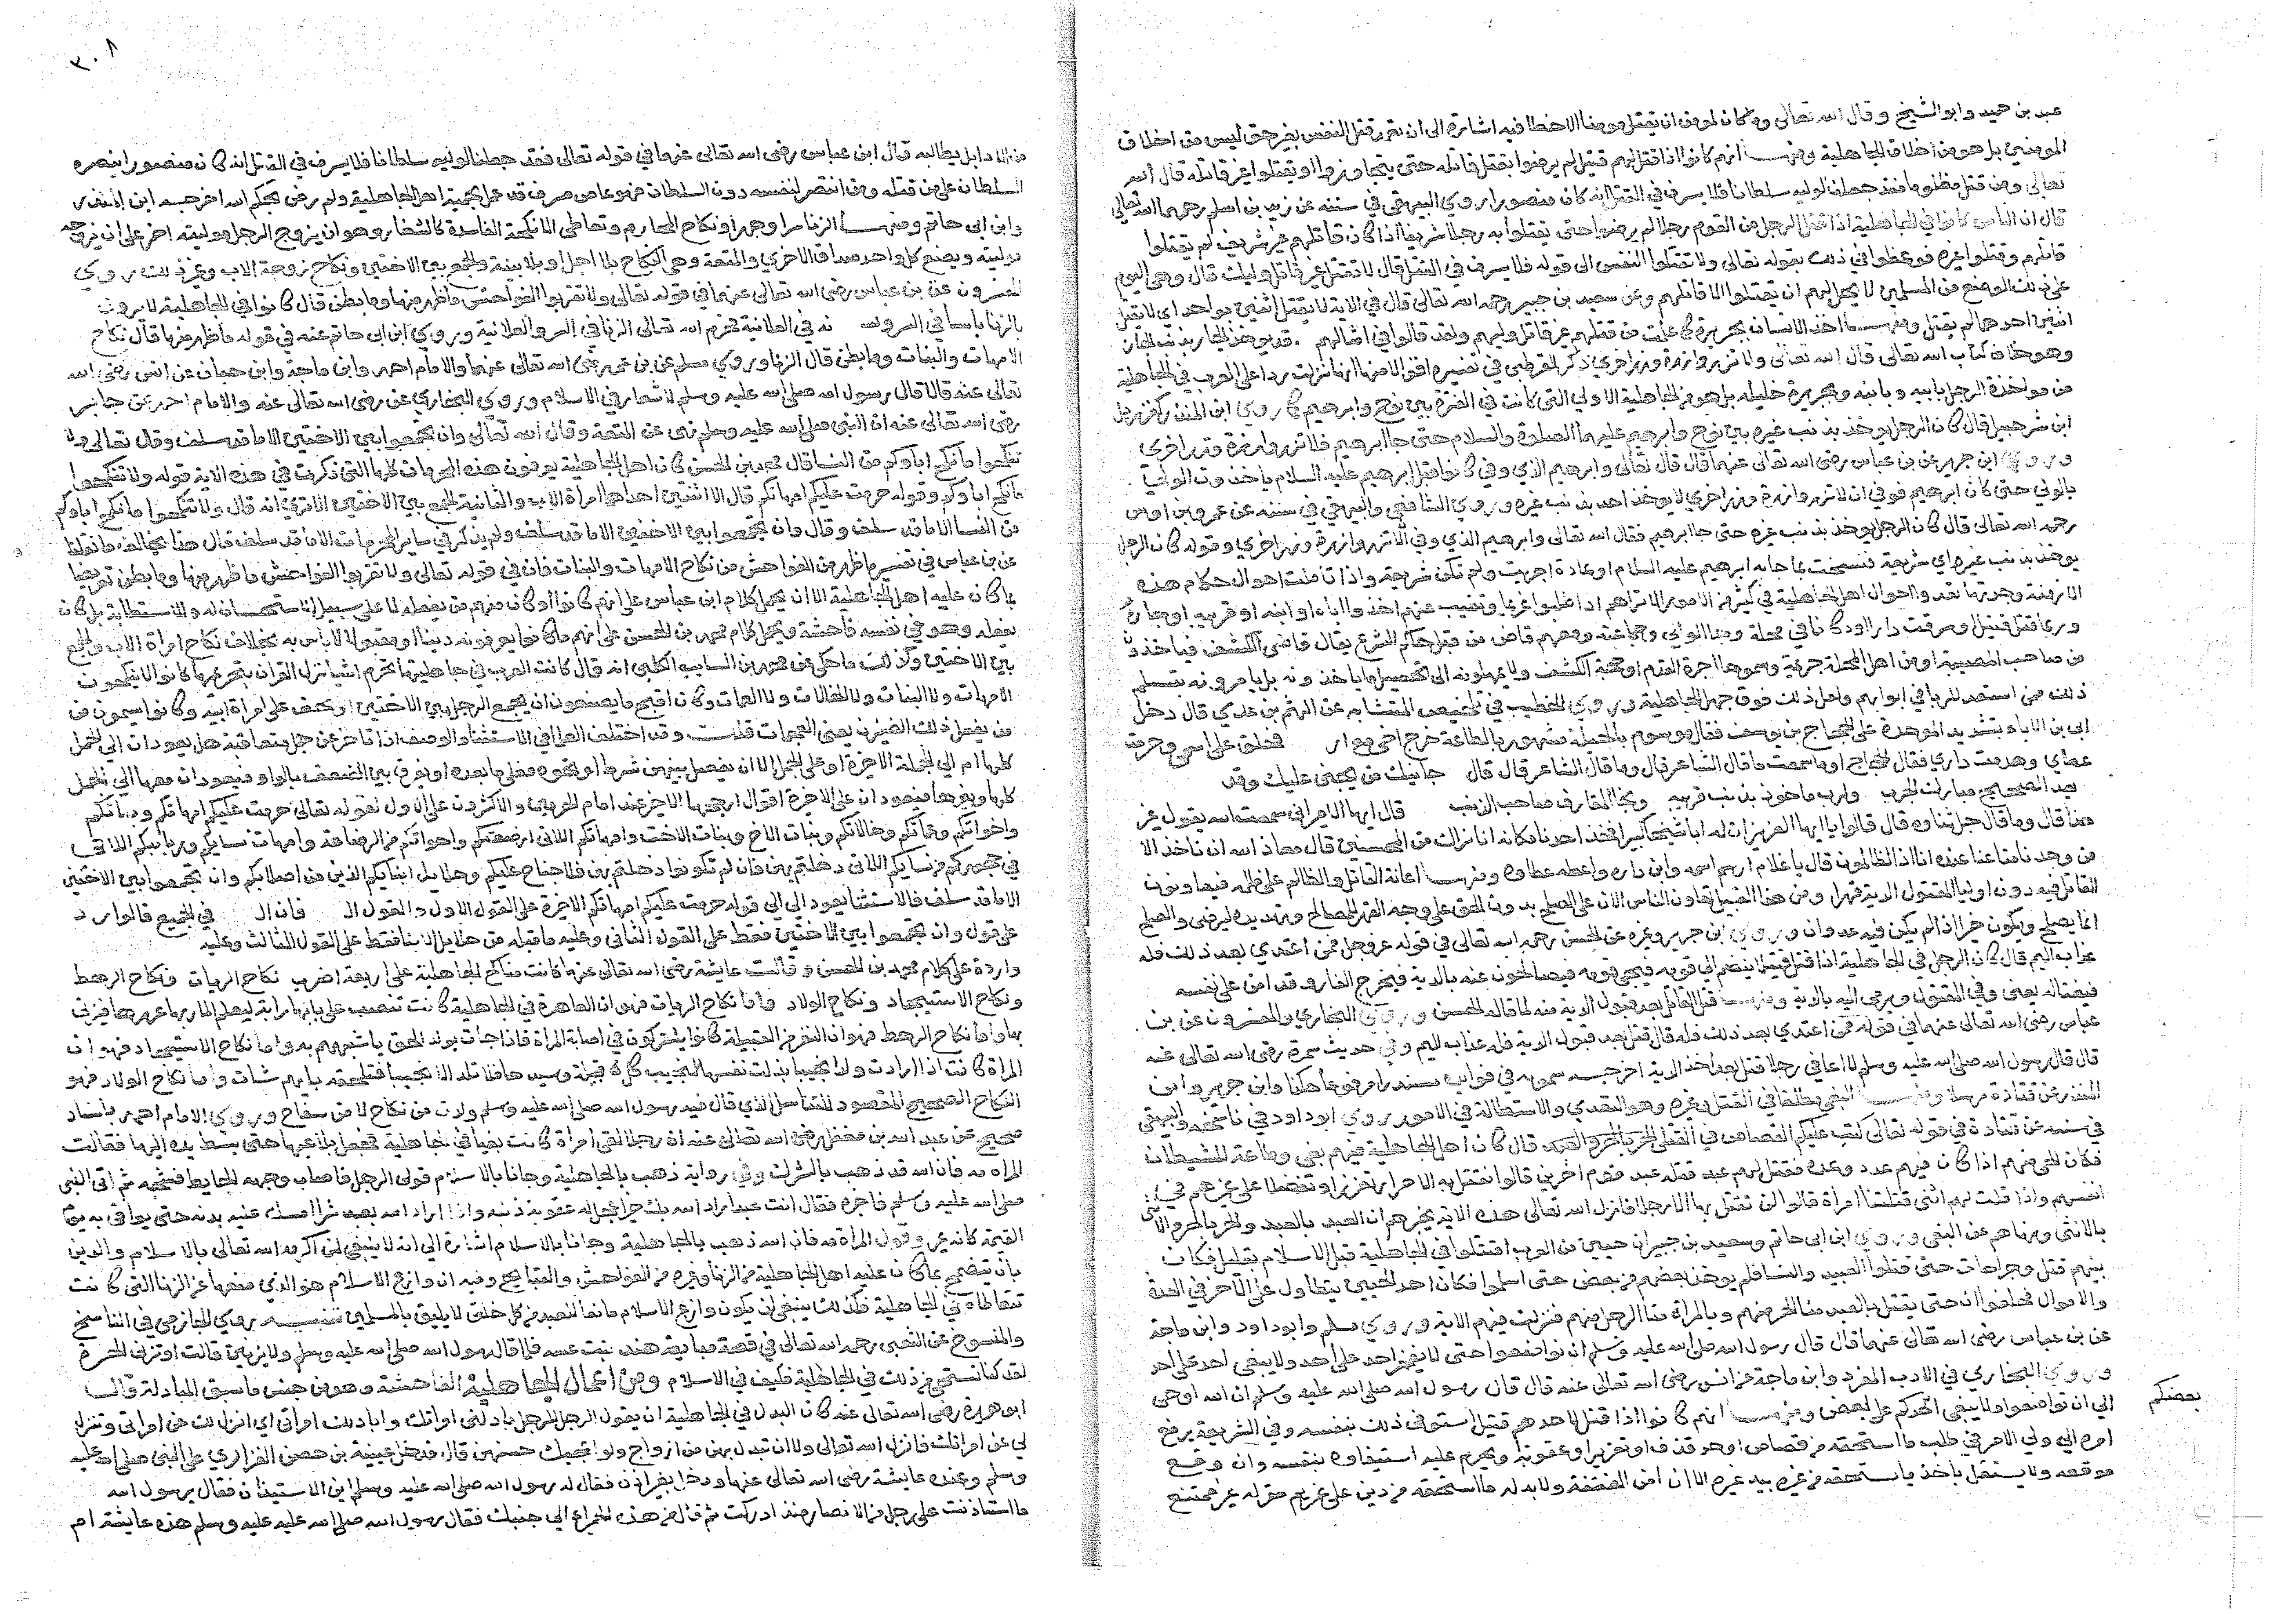 عبد بن حميد وابو الشيخ وقال الله تعالى وما كان لمومن ان يقتل مومنا الا خطا فيه اشارة الى ان تقرر قتل النفس بغير حق ليس من اخلاق
المومنين بل هو من اخلاق الجاهلية ومنها انهم كانوا اذا قتل لهم قتيل لم يرضوا بقتل قاتله حتى يتجاوزوا او يقتلوا غير قاتله قال الله
تعالى ومن قتل مظلوما فقد جعلنا لوليه سلطانا فلا يسرف في القتل انه كان منصورا روي البيهقي في سننه عن زيد بن اسلم رحمهما الله تعالى
قال ان الناس كانوا في الجاهلية اذا قتل الرجل من القوم رجلا لم يرضوا حتى يقتلوا به رجلا شريفا اذا كان قاتلهم غير شريف لم يقتلوا
قاتلهم وقتلوا غيره فوعظوا في ذلك بقوله تعالى ولا تقتلوا النفس الى قوله فلا يسرف في القتل قال لا تقتل غير قاتل وليك قال وهي اليوم
على ذلك الموضع من المسلمين لا يحل لهم ان يقتلوا الا قاتلهم وعن سعيد بن جبير رحمه الله تعالى قال في الاية لا يقتل اثنين بواحد اي لا تقتل
اثنين احدهما لم يقتل ومنها اخذ الانسان بجريرة كما علمت من قتلهم غير قاتل وليهم ولقد قالوا في امثالهم قد يوخذ الجار بذنب الجار
وهو خلاف كتاب الله تعالى قال الله تعالى ولا تزر وازرة وزر اخرى ذكر القرطبي في تفسيره اقوالا منها انها نزلت ردا على العرب في الجاهلية
من مواخذة الرجل بابيه وبابنه وبجريرة خليله بل هو من الجاهلية الاولى التي كانت في الفترة بين نوح وابرهيم كما روى ابن المنذر عن هزيل
ابن شرحبيل قال كان الرجل يوخذ بذنب غيره بين نوح وابرهيم عليهما الصلوة والسلام حتى جا ابرهيم فلا تزر وازرة وزر اخرى
وروى ابن جرير عن بن عباس رضى الله تعالى عنهما قال قال تعالى وابرهيم الذي وفي كانوا قبل ابرهيم عليه السلام ياخذون الولي
بالولي حتى كان ابرهيم فوفي ان لا تزر وازرة وزر اخرى لا يوخذ احد بذنب غيره وروى الشافعي والبيهقي في سننه عن عمرو بن اوس
رحمه الله تعالى قال كان الرجل يوخذ بذنب غيره حتى جا ابرهيم فقال الله تعالى وابرهيم الذي وفي الا تزر وازرة وزر اخرى وقوله كان الرجل
يوخذ بذنب غيره اي شريعة فنسخت بما جا به ابرهيم عليه السلام او عادة اجريت ولم تكن شريعة واذا تاملت احوال حكام هذه
الازمنة وجدتها تقدوا احوال اهل الجاهلية في كثير من الامور الا تراهم اذا طلبوا غريما وتغيب عنهم اخذوا اباه او ابنه او قريبه او جاره
من صاحب المصيبة او من اهل المحلة جريمة وسموها اجرة القدم او حجة الكشف ولا يمهلونه الى تحصيل ما ياخذونه بل يامرونه بتسلم
ذلك من استعد للربا في ابوابهم ولعل ذلك فوق جهل الجاهلية وروى الخطيب في تلخيص المتشابه عن الهيثم بن عدي قال دخل
عطاي وهدمت داري فقال الحجاج اوما سمعت ما قال الشاعر قال وما قال الشاعر قال قال جانيك من يجني عليك وقد
تعدي الصحايح مبارك الجرب ولرب ماخوذ بذنب قريبه ونجا المقارف صاحب الذنب قال ايها الامير اني سمعت الله يقول غير
هذا قال وما قال جل ثناوه قال قالوا يا ايها العزيز ان له ابا شيخا كبيرا فخذ احدنا مكانه انا نراك من المحسنين قال معاذ الله ان ناخذ الا
من وجدنا متاعنا عنده انا اذا لظالمون قال يا غلام ارسم اسمه وابن داره واعطه عطاه ومنها اعانة القاتل والظالم على ظلمه فيعاونون
القاتل فيه دون اوليا المقتول الدية قهرا ومن هذا القبيل تعاون الناس الان على الصلح بدون الحق على وجه القهر للمصالح وتهديده ليرضى والصلح
انما يصلح ويكون خيرا اذا لم يكن فيه عدوان وروى ابن جرير وغيره عن الحسن رحمه الله تعالى في قوله عز وجل فمن اعتدي بعد ذلك فله
عذاب اليم قال كان الرجل في الجاهلية اذا قتل قتيلا ينضم الى قومه فيجي قومه فيصالحون عنه بالدية فيخرج الفار وقد امن على نفسه
فيقتله يعني ولي المقتول ويرمي اليه بالدية ومنها قتل القاتل بعد قبول الدية منه لما قاله الحسن وروى البخاري والمفسرون عن بن
عباس رضى الله تعالى عنهما في قوله فمن اعتدي بعد ذلك فله قال قتل بعد قبول الدية فله عذاب اليم وفي حديث سمرة رضى الله تعالى عنه
قال قال رسول الله صلى الله عليه وسلم لا اعافي رجلا قتل بعد اخذ الدية اخرجه سمويه في فوايده بسنده مرفوعا هكذا وابن جرير وابن
المنذر عن قتادة مرسلا ومنها البغي مطلقا في القتل وغيره وهو التعدي والاستطالة في الامور روى ابو داود في ناسخه والبيهقي
في سننه عن قتادة في قوله تعالى كتب عليكم القصاص في القتلى الحر بالحر والعبد قال كان اهل الجاهلية فيهم بغي وطاعة للشيطان
فكان الحي منهم اذا كان فيهم عدد وعدة فقتل لهم عبد قتله عبد قوم اخرين قالوا لا نقتل به الا حرا تعززا وتفضلا على غيرهم في
انفسهم واذا قتلت لهم انثى قتلتها امراة قالوا لن نقتل بها الا رجلا فانزل الله تعالى هذه الاية يخبرهم ان العبد بالعبد والحر بالحر والانثى
بالانثى ونهاهم عن البغي وروى ابن ابي حاتم وسعيد بن جبير ان حيين من العرب اقتتلوا في الجاهلية قبل الاسلام بقليل فكان
بينهم قتل وجراحات حتى قتلوا العبيد والنسا فلم يوخذ بعضهم من بعض حتى اسلموا فكان احد الحيين يتطاول على الآخر في العدة
والاموال فحلفوا ان حتى يقتل بالعبد منا الحر منهم وبالمراة منا الرجل منهم فنزلت فيهم الاية وروى مسلم وابو داود وابن ماجة
عن بن عباس رضى الله تعالى عنهما قال قال رسول الله صلى الله عليه وسلم ان تواضعوا حتى لا يفخر احد على احد ولا يبغي احد على احد
وروى البخاري في الادب المفرد وابن ماجة عن انس رضى الله تعالى عنه قال قال رسول الله صلى الله عليه وسلم ان الله اوحى
الي ان تواضعوا ولا يبغي بعضكم على بعض ومنها انهم كانوا اذا قتل لاحدهم قتيل استوفى ذلك بنفسه وفي الشريعة يرفع
امره الى ولي الامر في طلب ما استحقه من قصاص او حد قذف او تعزير او عقوبة ويحرم عليه استيفاوه بنفسه وان وقع
موقعه ولا يستقل باخذ ما يستحقه من غيره بيد غيره الا ان امن الفتنة ولا بد له ما استحقه من دين على غريم مقر له غير ممتنع
بعضكم
٣٠٨
ابن عباس رضى الله تعالى عنهما في قوله تعالى فقد جعلنا لوليه سلطانا فلا يسرف في القتل انه كان منصورا بنصره
السلطان على من قتله ومن انتصر لنفسه دون السلطان فهو عاص مسرف قد عمل بحمية اهل الجاهلية ولم يرض بحكم الله اخرجه ابن المنذر
وابن ابي حاتم ومنها الزنا سرا وجهرا ونكاح المحارم وتعاطي الانكحة الفاسدة كالشغار وهو ان يزوج الرجل موليته اخر على ان يزوجه
موليته وبضع كل واحد صداق الاخرى والمتعة وهي النكاح بلا اجل او بلا بينة والجمع بين الاختين ونكاح زوجة الاب وغير ذلك روى
المفسرون عن بن عباس رضى الله تعالى عنهما في قوله تعالى ولا تقربوا الفواحش ما ظهر منها وما بطن قال كانوا في الجاهلية لا يرون
بالزنا باسا في السر ونه في العلانية فحرم الله تعالى الزنا في السر والعلانية وروى ابن ابي حاتم عنه في قوله ما ظهر منها قال نكاح
الامهات والبنات وما بطن قال الزنا وروى مسلم عن بن عمر رضى الله تعالى عنهما والامام احمد وابن ماجة وابن حبان عن انس رضى الله
تعالى عنه قالا قال رسول الله صلى الله عليه وسلم لا شغار في الاسلام وروى البخاري عن رضى الله تعالى عنه والامام احمد عن جابر
رضى الله تعالى عنه ان النبي صلى الله عليه وسلم نهى عن المتعة وقال الله تعالى وان تجمعوا بين الاختين الا ما قد سلف وقال تعالى ولا
تنكحوا ما نكح اباوكم من النسا قال محمد بن الحسن كان اهل الجاهلية يعرفون هذه المحرمات كلها التي ذكرت في هذه الاية قوله ولا تنكحوا
ما نكح اباوكم وقوله حرمت عليكم امهاتكم قال الا اثنتين احداهما امراة الاب والثانية الجمع بين الاختين الا ترى انه قال ولا تنكحوا ما نكح اباوكم
من النسا الا ما قد سلف وقال وان تجمعوا بين الاختين الا ما قد سلف ولم يذكر في ساير المحرمات الا ما قد سلف قال هذا يخالف ما نقلنا
عن بن عباس في تفسير ما ظهر من الفواحش من نكاح الامهات والبنات فان في قوله تعالى ولا تقربوا الفواحش ما ظهر منها وما بطن تعريضا
بما كان عليه اهل الجاهلية الا ان يحمل كلام ابن عباس على انهم كانوا او كان منهم من يفعله لا على سبيل الاستحسان له والاستطابة بل كان
يفعله وهو في نفسه فاحشة ويحمل كلام محمد بن الحسن على انهم ما كانوا يعرفونه دينا او يقولوا لا باس به بخلاف نكاح امراة الاب والجمع
بين الاختين وكذلك ما حكي عن محمد بن السايب الكلبي انه قال كانت العرب في جاهليتها تحرم اشيا نزل القران بتحريمها كانوا لا ينكحون
الامهات ولا البنات ولا الخالات ولا العمات وكان اقبح ما يصنعون ان يجمع الرجل بين الاختين او يخلف على امراة ابيه وكانوا يسمون من
يفعل ذلك الضيزن يعني قلت وقد اختلف العلما في الاستثنا والوصف اذا تاخر عن جمل متعاقبة هل يعودان الى الجمل
كلها ام الى الجملة الاخيرة او على الجمل الا ان يفصل بينهن شرط او نحوه فعلى ما بعده او يفرق بين العطف بالواو فيعودان معها الى الجمل
كلها وبغيرها فيعودان على الاخيرة اقوال ارجحها الاخير عند امام الحرمين والاكثرون على الاول لقوله تعالى حرمت عليكم امهاتكم وبناتكم
واخواتكم وعماتكم وخالاتكم وبنات الاخ وبنات الاخت وامهاتكم اللاتي ارضعنكم واخواتكم من الرضاعة وامهات نسايكم وربايبكم اللاتي
في حجوركم من نسايكم اللاتي دخلتم بهن فان لم تكونوا دخلتم بهن فلا جناح عليكم وحلايل ابنايكم الذين من اصلابكم وان تجمعوا بين الاختين
الا ما قد سلف فالاستثنا يعود الى الى قوله حرمت عليكم امهاتكم الاخيرة على القول الاول والقول ال فان ال في الجميع قالوا رد
على قول وان تجمعوا بين الاختين فقط على القول الثاني وعليه ما قبله من حلايل الابنا فقط على القول الثالث وعليه
واردة على كلام محمد بن الحسن وقالت عايشة رضى الله تعالى عنها كانت مناكح الجاهلية على اربعة اضرب نكاح الرايات ونكاح الرهط
ونكاح الاستنجاد ونكاح الولاد واما نكاح الرايات فهو ان العاهرة في الجاهلية كانت تنصب على بابها راية ليعلم المار بها عهرها فيزني
بها واما نكاح الرهط فهو ان النفر من القبيلة كانوا يشتركون في اصابة المراة فاذا جات بولد الحق باشبههم به واما نكاح الاستنجاد فهو ان
المراة كانت اذا ارادت ولدا نجيبا بذلت نفسها لنجيب كل قبيلة وسيدها فلا تلد الا نجيبا فتلحقه بايهم شات واما نكاح الولاد فهو
النكاح الصحيح المقصود للتناسل الذي قال فيه رسول الله صلى الله عليه وسلم ولدت من نكاح لا من سفاح وروى الامام احمد باسناد
صحيح عن عبد الله بن مغفل رضى الله تعالى عنه ان رجلا لقي امراة كانت بغيا في الجاهلية فجعل يلاعبها حتى بسط يده اليها فقالت
المراة مه فان الله قد ذهب بالشرك وفي رواية ذهب بالجاهلية وجانا بالاسلام فولى الرجل فاصاب وجهه الحايط فشجه ثم اتى النبي
صلى الله عليه وسلم فاخبره فقال انت عبد اراد الله بك خيرا فجعل له عقوبة ذنبه واذا اراد الله بعبد شرا امسك عليه بذنبه حتى يوافى به يوم
القيمة كانه عير وقول المراة مه فان الله ذهب بالجاهلية وجانا بالاسلام اشارة الى انه لا ينبغي لمن اكرمه الله تعالى بالاسلام والدين
بان يتضمخ بما كان عليه اهل الجاهلية من الزنا وغيره من الفواحش والقبايح وفيه ان وازع الاسلام هو الذي منعها عن الزنا التي كانت
تتعاطاه في الجاهلية فكذلك ينبغي ان يكون وازع الاسلام مانعا للعبد من كل خلق لا يليق بالمسلمين تنبيه روى الحازمي في الناسخ
والمنسوخ عن الشعبي رحمه الله تعالى في قصة مبايعة هند بنت عتبة فلما قال رسول الله صلى الله عليه وسلم ولا يزنين قالت اوتزني الحرة
لقد كنا نستحي من ذلك في الجاهلية فكيف في الاسلام ومن اعمال الجاهلية الفاحشة وهو من جنس ما سبق المبادلة قال
ابو هريرة رضى الله تعالى عنه كان البدل في الجاهلية ان يقول الرجل للرجل بادلني امراتك وابادلك امراتي اي انزل لك عن امراتي وتنزل
لي عن امراتك فانزل الله تعالى ولا ان تبدل بهن من ازواج ولو اعجبك حسنهن قال فدخل عيينة بن حصن الفزاري على النبي صلى الله عليه
وسلم وعنده عايشة رضى الله تعالى عنها ودخل بغير اذن فقال له رسول الله صلى الله عليه وسلم اين الاستيذان فقال يرسول الله
ما استاذنت على رجل من الانصار منذ ادركت ثم قال من هذه الحميراء الى جنبك فقال رسول الله صلى الله عليه وسلم هذه عايشة ام